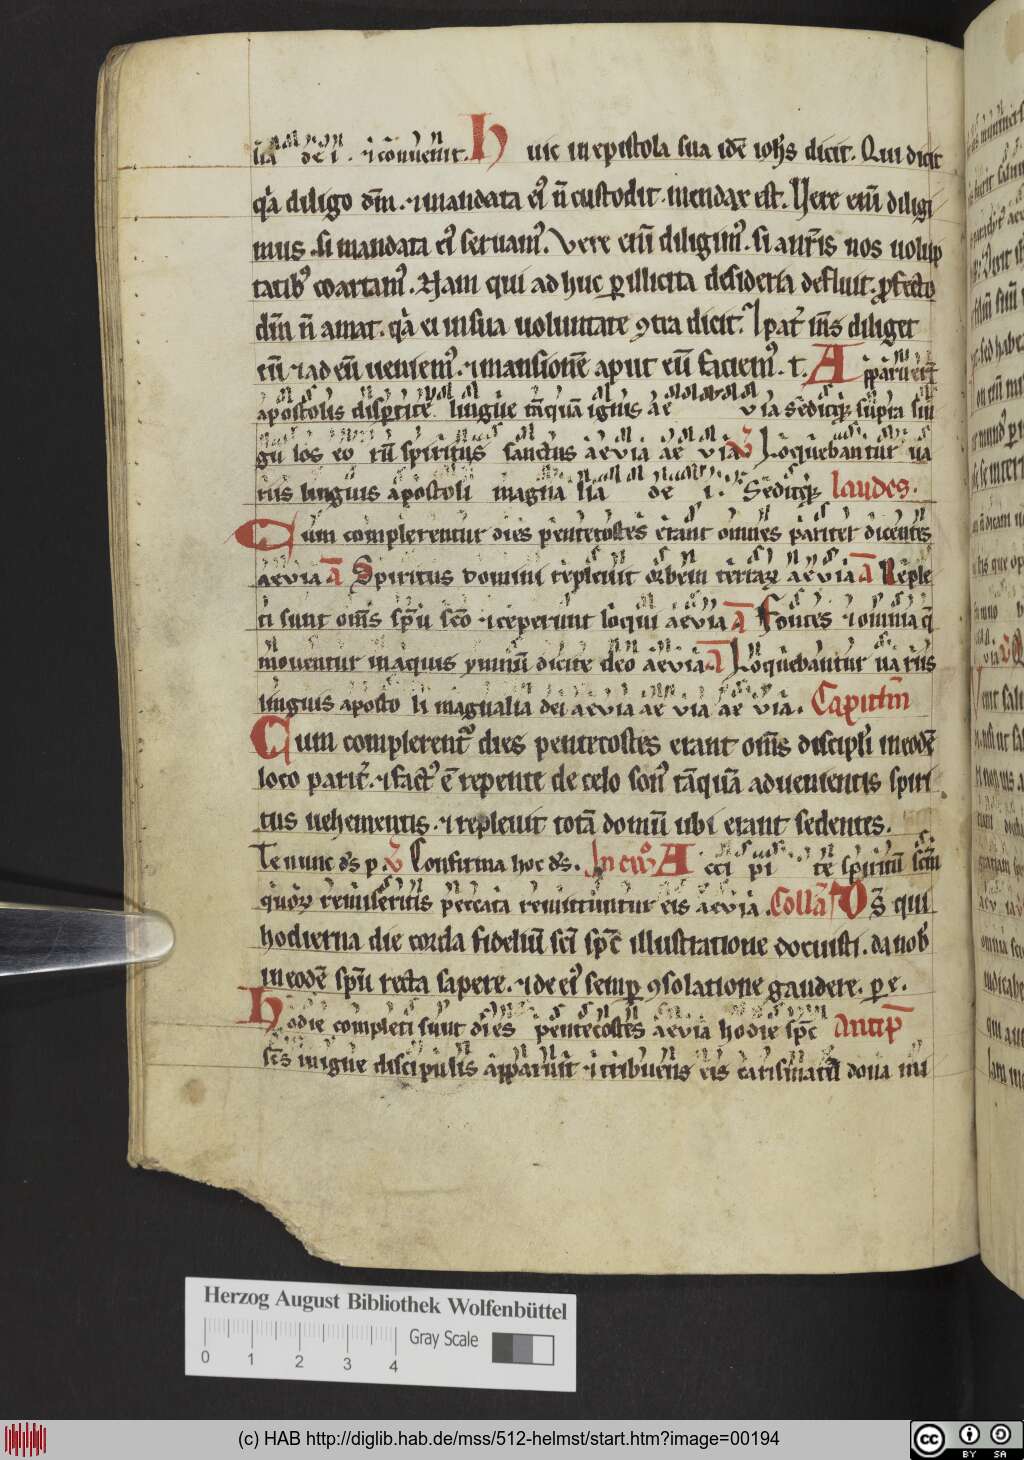 lia de i. ⁊ c̄ouuenit. Huic in epistola sua idē ioh̄s dicit. Qui dicit
qͣ diligo dm̄. ⁊ mandata eiꝰ n̄ custodit mendax est. Vere enī diligi
mus si mandata eiꝰ seruamꝰ. Vere enī diligimꝰ. si a nr̄is nos uolup
tatibꝰ coartamꝰ. Nam qui adhuc ꝑ illicita desideria defluit. ꝓfecto
dm̄ n̄ amat. qͣ ei in sua uoluntate ꝯtra dicit. I pat̄ m̄s diliget
eū ⁊ ad eū ueniemꝰ. ⁊ mansionē aput eū faciemꝰ. t. Apparuert̄
apostolis disꝑtite lingue tāquā ignis ae via seditqꝫ supra sin
gu los eo rū spiritus sanctus aevia ae via Loquebantur ua
riis linguis apostoli magna lia de i. Seditqꝫ laudes.
Cum complerentur dies pentecostes erant omnes pariter dicentes
aevia Ā Spiritus domini repleuit orbem terraꝝ aevia Ā Reple
ti sunt om̄s spū scō ⁊ ceperunt loqui aevia Ā Fontes ⁊ omnia q̄
mouentur in aquis ymnū dicite deo aevia Ā Loquebantur uariis
linguis aposto li magnalia dei aevia ae via ae via. Capitm̄
Cum complerent̄ dies pentecostes erant om̄s discipli in eodē
loco parit̄. ⁊ factꝰ ē repente de celo sonꝰ tāquā aduenientis spiri
tus uehementis. ⁊ repleuit totā domū ubi erant sedentes.
Te nunc ds̄ p. Confirma hoc ds̄. In eūo Acci pi te spiritū scm̄
quoꝝ remiseritis peccata remittuntur eis aevia. Collā Ds̄ qui
hodierna die corda fideliū sci spc̄ illustratione docuisti. da nob̄
in eodē spū recta sapere. ⁊ de eiꝰ semꝑ ꝯsolatione gaudere. ꝑ e.
Hodie completi sunt dies pentecostes aevia hodie spc̄ Antip̄
scs̄ in igne discipulis apparuit ⁊ tribuens eis carismatū dona mi
Herzog August Bibliothek Wolfenbüttel
Gray Scale
0 1 2 3 4
(c) HAB http://diglib.hab.de/mss/512-helmst/start.htm?image=00194
cc BY SA